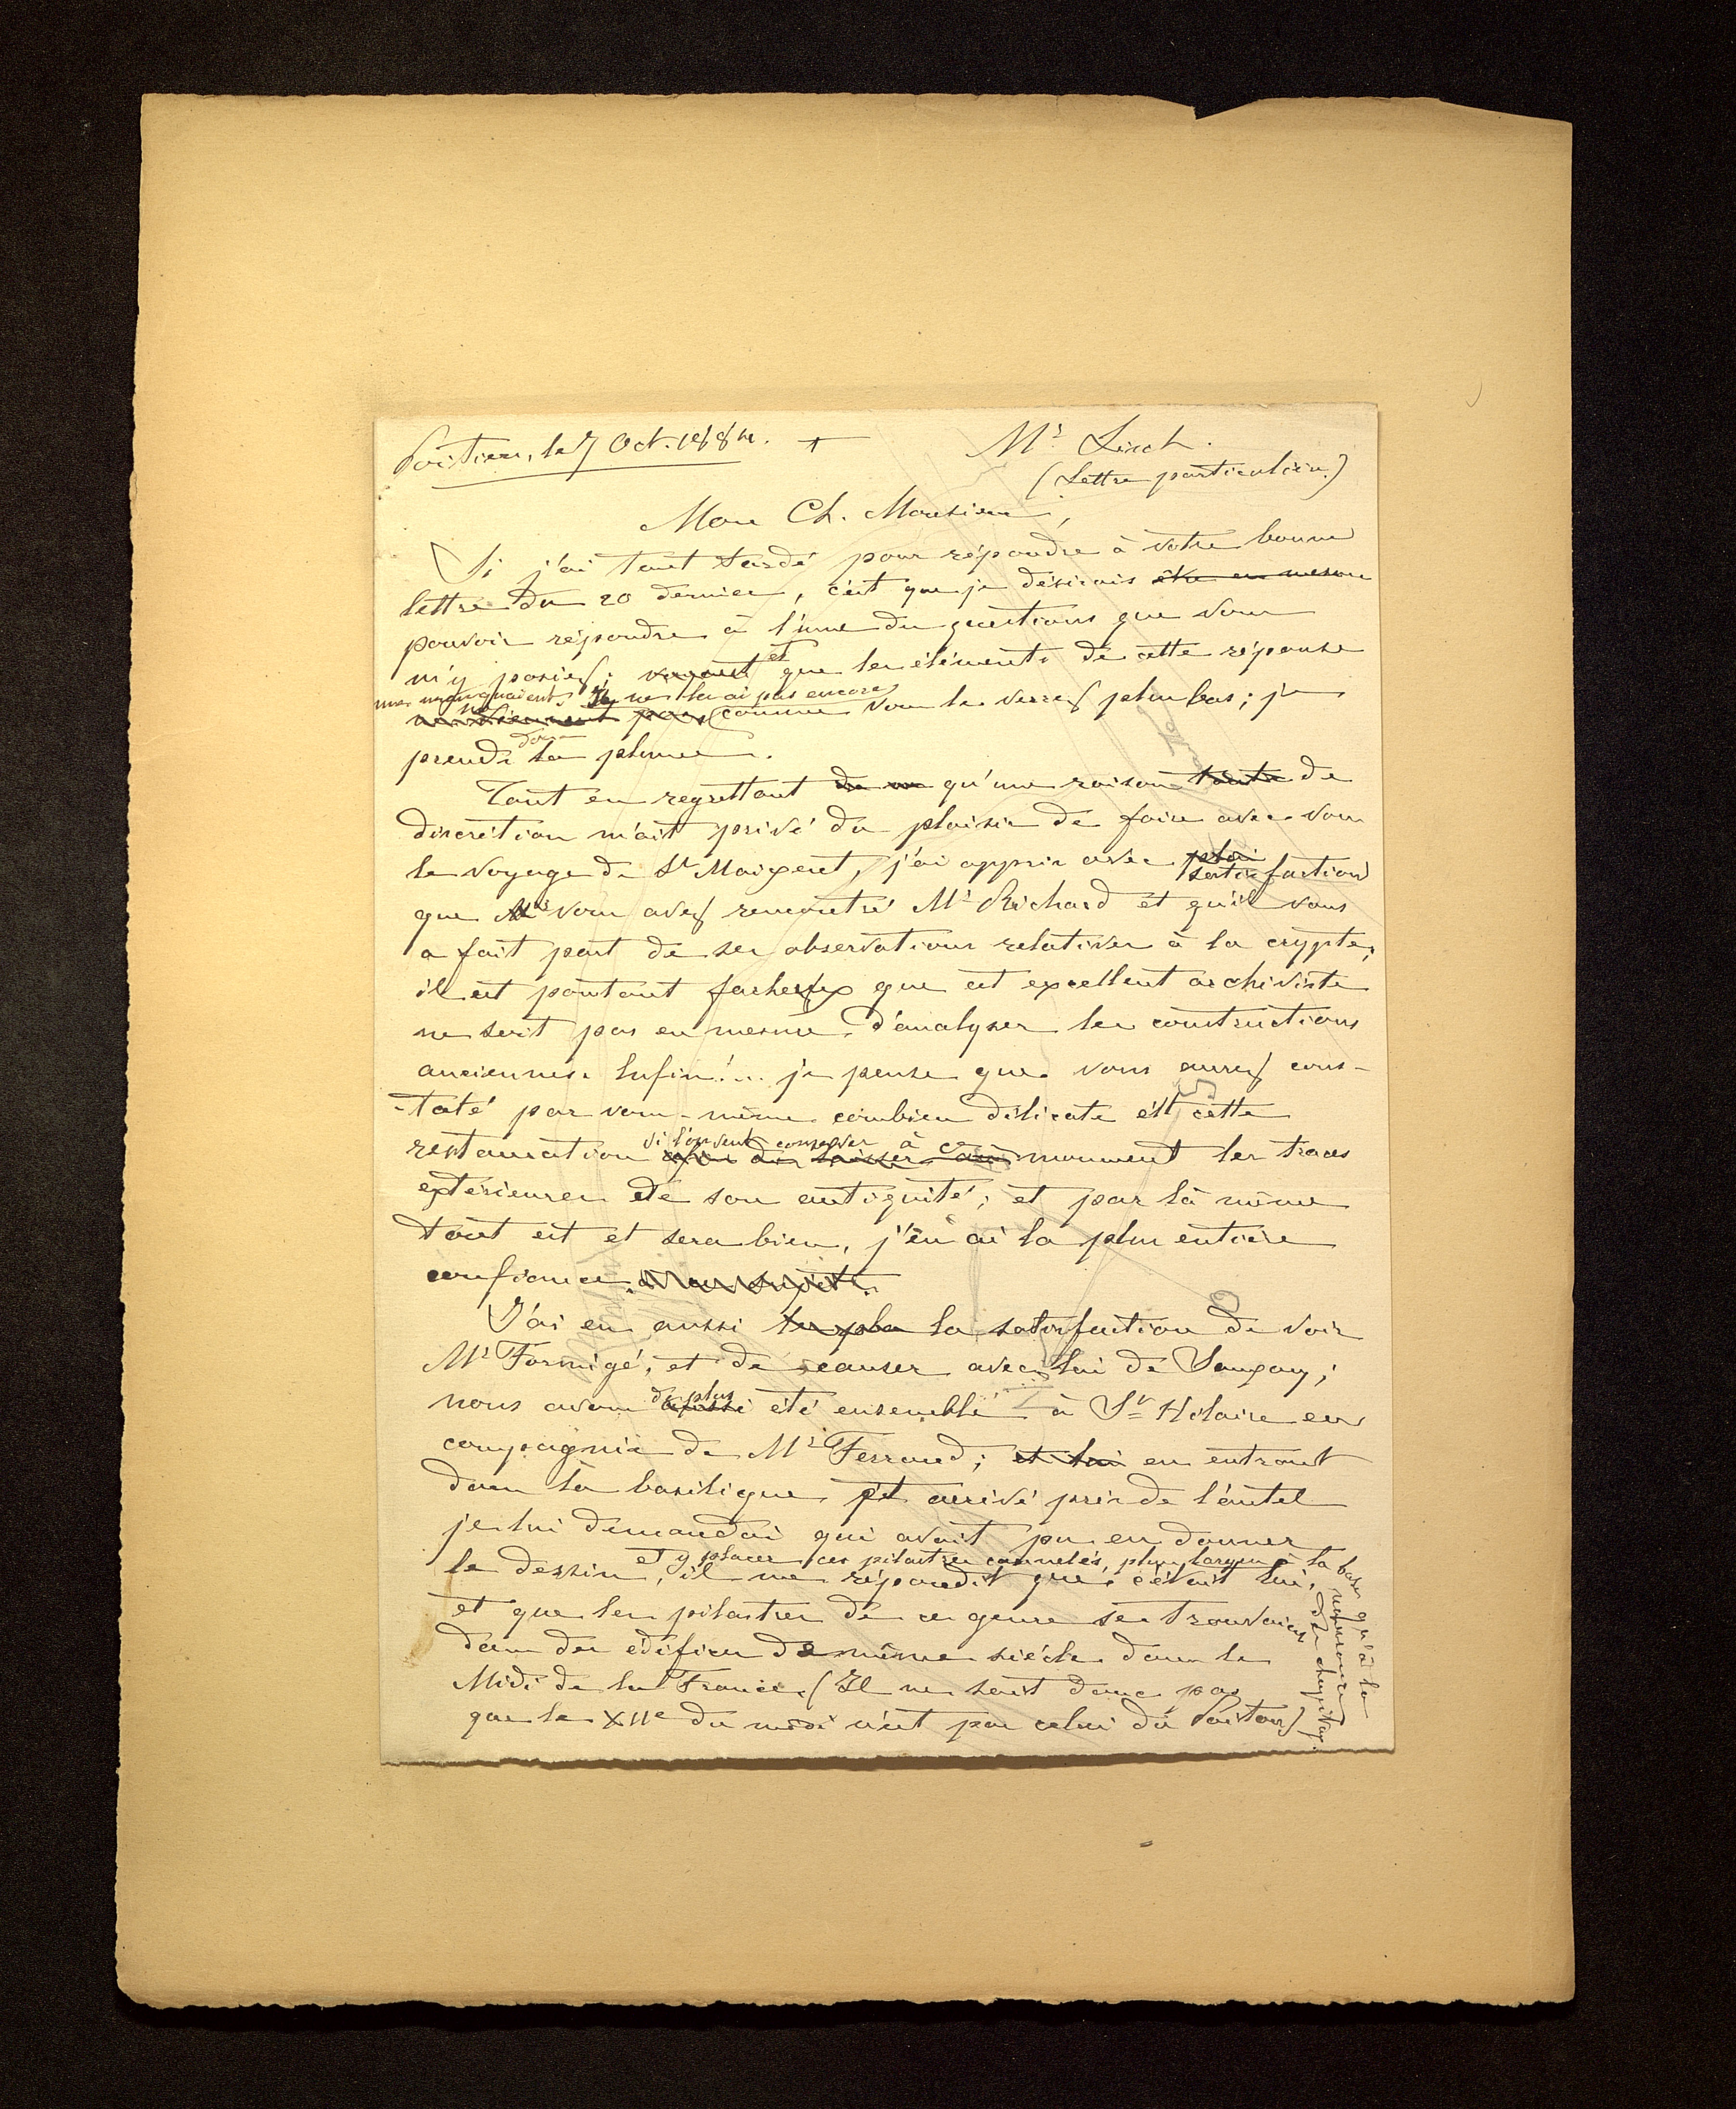 Poitiers, le 7 Oct. 1884. +
Mr Lisch.
(Lettre particulière.)
Mon Ch. Monsieur,
Si j'ai tant tardé pour répondre à votre bonne
lettre du 20 dernier, c'est que je désirais être en mesure
pouvoir répondre à l'une des questions que vous
m'y posiez; et que les éléments de cette réponse
me manquaient. Je ne les ai pas encore
comme vous le verrez plus bas; je
prends donc la plume.
Tout en regrettant de ne qu'une raison toute de
discrétion m'ait privé du plaisir de faire avec vous
le voyage de St Maixent, j'ai appris avec plai satisfaction
que vous avez rencontré Mr Richard et qu'il vous
a fait part de ses observations relatives à la crypte;
il est pourtant facheux que cet excellent archiviste
ne soit pas en mesure d'analyser les constructions
anciennes. Enfin!... je pense que vous aurez cons-
-taté par vous-même combien délicate est cette
restauration si l'on veut conserver à ce
afin de laisser monument les traces
extérieures de son antiquité; et par là même
tout est et sera bien, j'en ai la plus entière
confiance à ce sujet.
J'ai eu aussi le pla la satisfaction de voir
Mr Formigé, et de causer avec lui de Saugay;
nous avons de plus aussi été ensemble à St Hilaire en
compagnie de Mr Ferrand; et lui en entrant
dans la basilique et arrivé près de l'autel
je lui demandai qui avait pu en donner
le dessin, et y placer ces pilastres cannelés, plus larges à la base qu'à la
naissance des chapiteaux.
il me répondit que c'était lui,
et que les pilastres de ce genre se trouvaient
dans des édifices de même siècle dans le
Midi de la France. (Il ne sait donc pas
que le XIIe du midi n'est pas celui du Poitou)